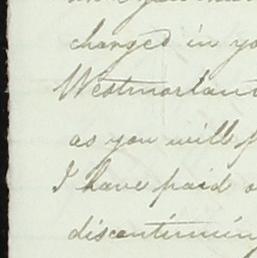 charged in yo
Westmorland
as you will f
I have paid
discontinuing